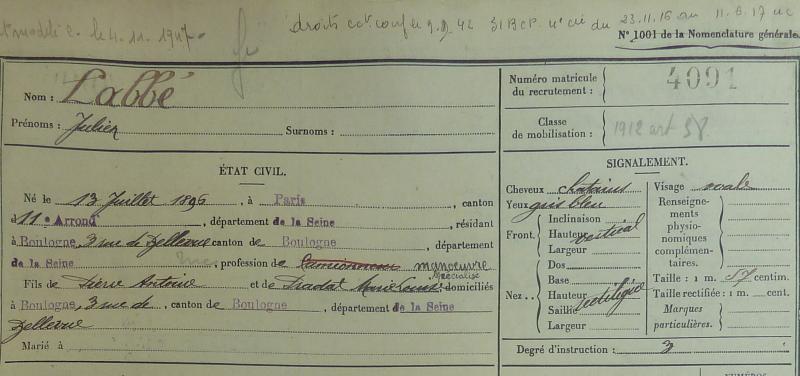 le 4.11.1947.
droits cct conf 9.9.42 31 BCP u cie du 23.11.16 au 11.6.17 uc
N° 1001 de la Nomenclature générale.
Nom : Labbé
Prénoms : Julien Surnoms :
Numéro matricule du recrutement : 4091
Classe de mobilisation : 1912 art 58
ÉTAT CIVIL.
Né le 13 Juillet 1896, à Paris, canton
d 11e Arrond, département de la Seine, résidant
à Boulogne, 3 rue de Bellevue canton de Boulogne, département
de la Seine, profession de Camionneur manoeuvre
spécialisé
Fils de Pierre Antoine et de Pradat Marie Louise domiciliés
à Boulogne, 3 rue de, canton de Boulogne, département de la Seine
Bellevue
Marié à
SIGNALEMENT.
Cheveux chatains
Yeux gris bleu
Front. Inclinaison
Hauteur vertical
Largeur
Nez. Dos
Base
Hauteur rectiligne
Saillie
Largeur
Visage ovale
Renseignements physionomiques complémentaires.
Taille : 1 m. 57 centim.
Taille rectifiée : 1 m. cent.
Marques particulières.
Degré d'instruction : 3
NUMÉROS